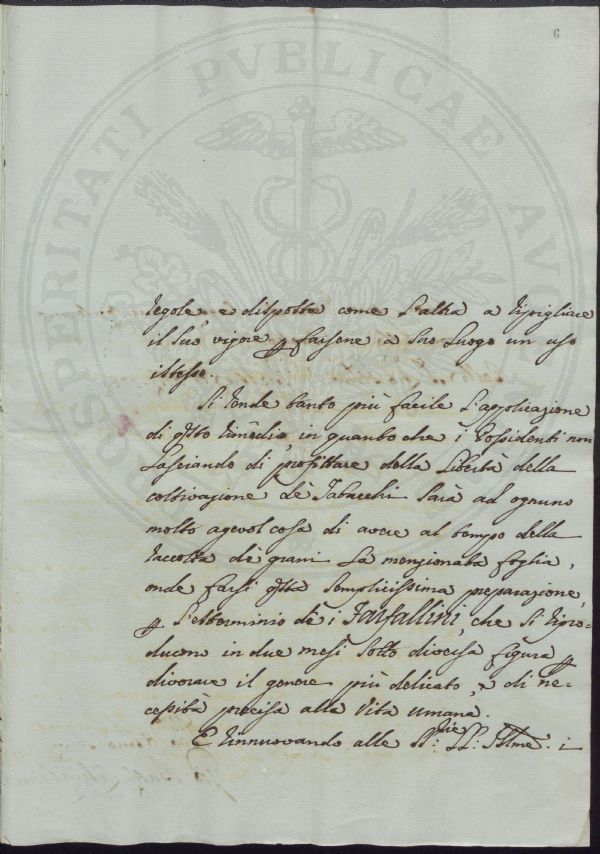 6
PROSPERITATI PVBLICAE AVGENDAE
regole e disposta come l'altra a ripigliare
il suo vigore p farsone a suo luogo un uso
istesso.
Si rende tanto più facile l'applicazione
di qsto rimedio, in quanto che i Possidenti non
lasciando di profittare della libertà della
coltivazione de Tabacchi sarà ad ognuno
molto agevol cosa di avere al tempo della
raccolta dè grani la menzionata foglia,
onde farsi qsta semplicissima preparazione,
p l'esterminio dè i Farfallini, che si ripro-
ducono in due mesi sotto diversa figura p
divorare il genere più delicato, e di ne-
cessità precisa alla vita umana.
E rinnuovando alle SS:rie LL: Illme: i